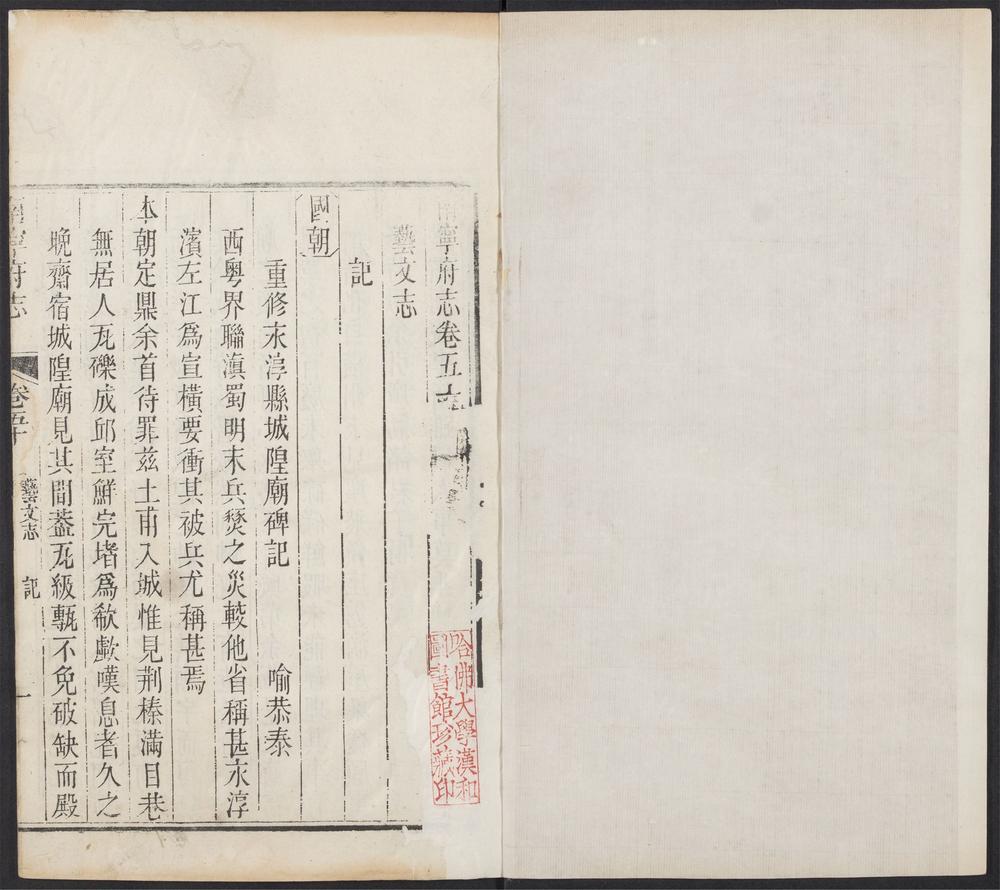 南寧府志卷五十
藝文志
記
國朝
重修永淳縣城隍廟碑記 喻恭泰
西粵界聯滇蜀明末兵燹之災較他省稱甚永淳
濱左江爲宣橫要衝其被兵尤稱甚焉
本朝定鼎余首待罪兹土甫入城惟見荆榛滿目巷
無居人瓦礫成邱室鮮完堵爲欷歔嘆息者久之
晚齋宿城隍廟見其間蓋瓦級甎不免破缺而殿
南寧府志 卷五十 藝文志 記 一
哈佛大學漢和
圖書館珍藏印